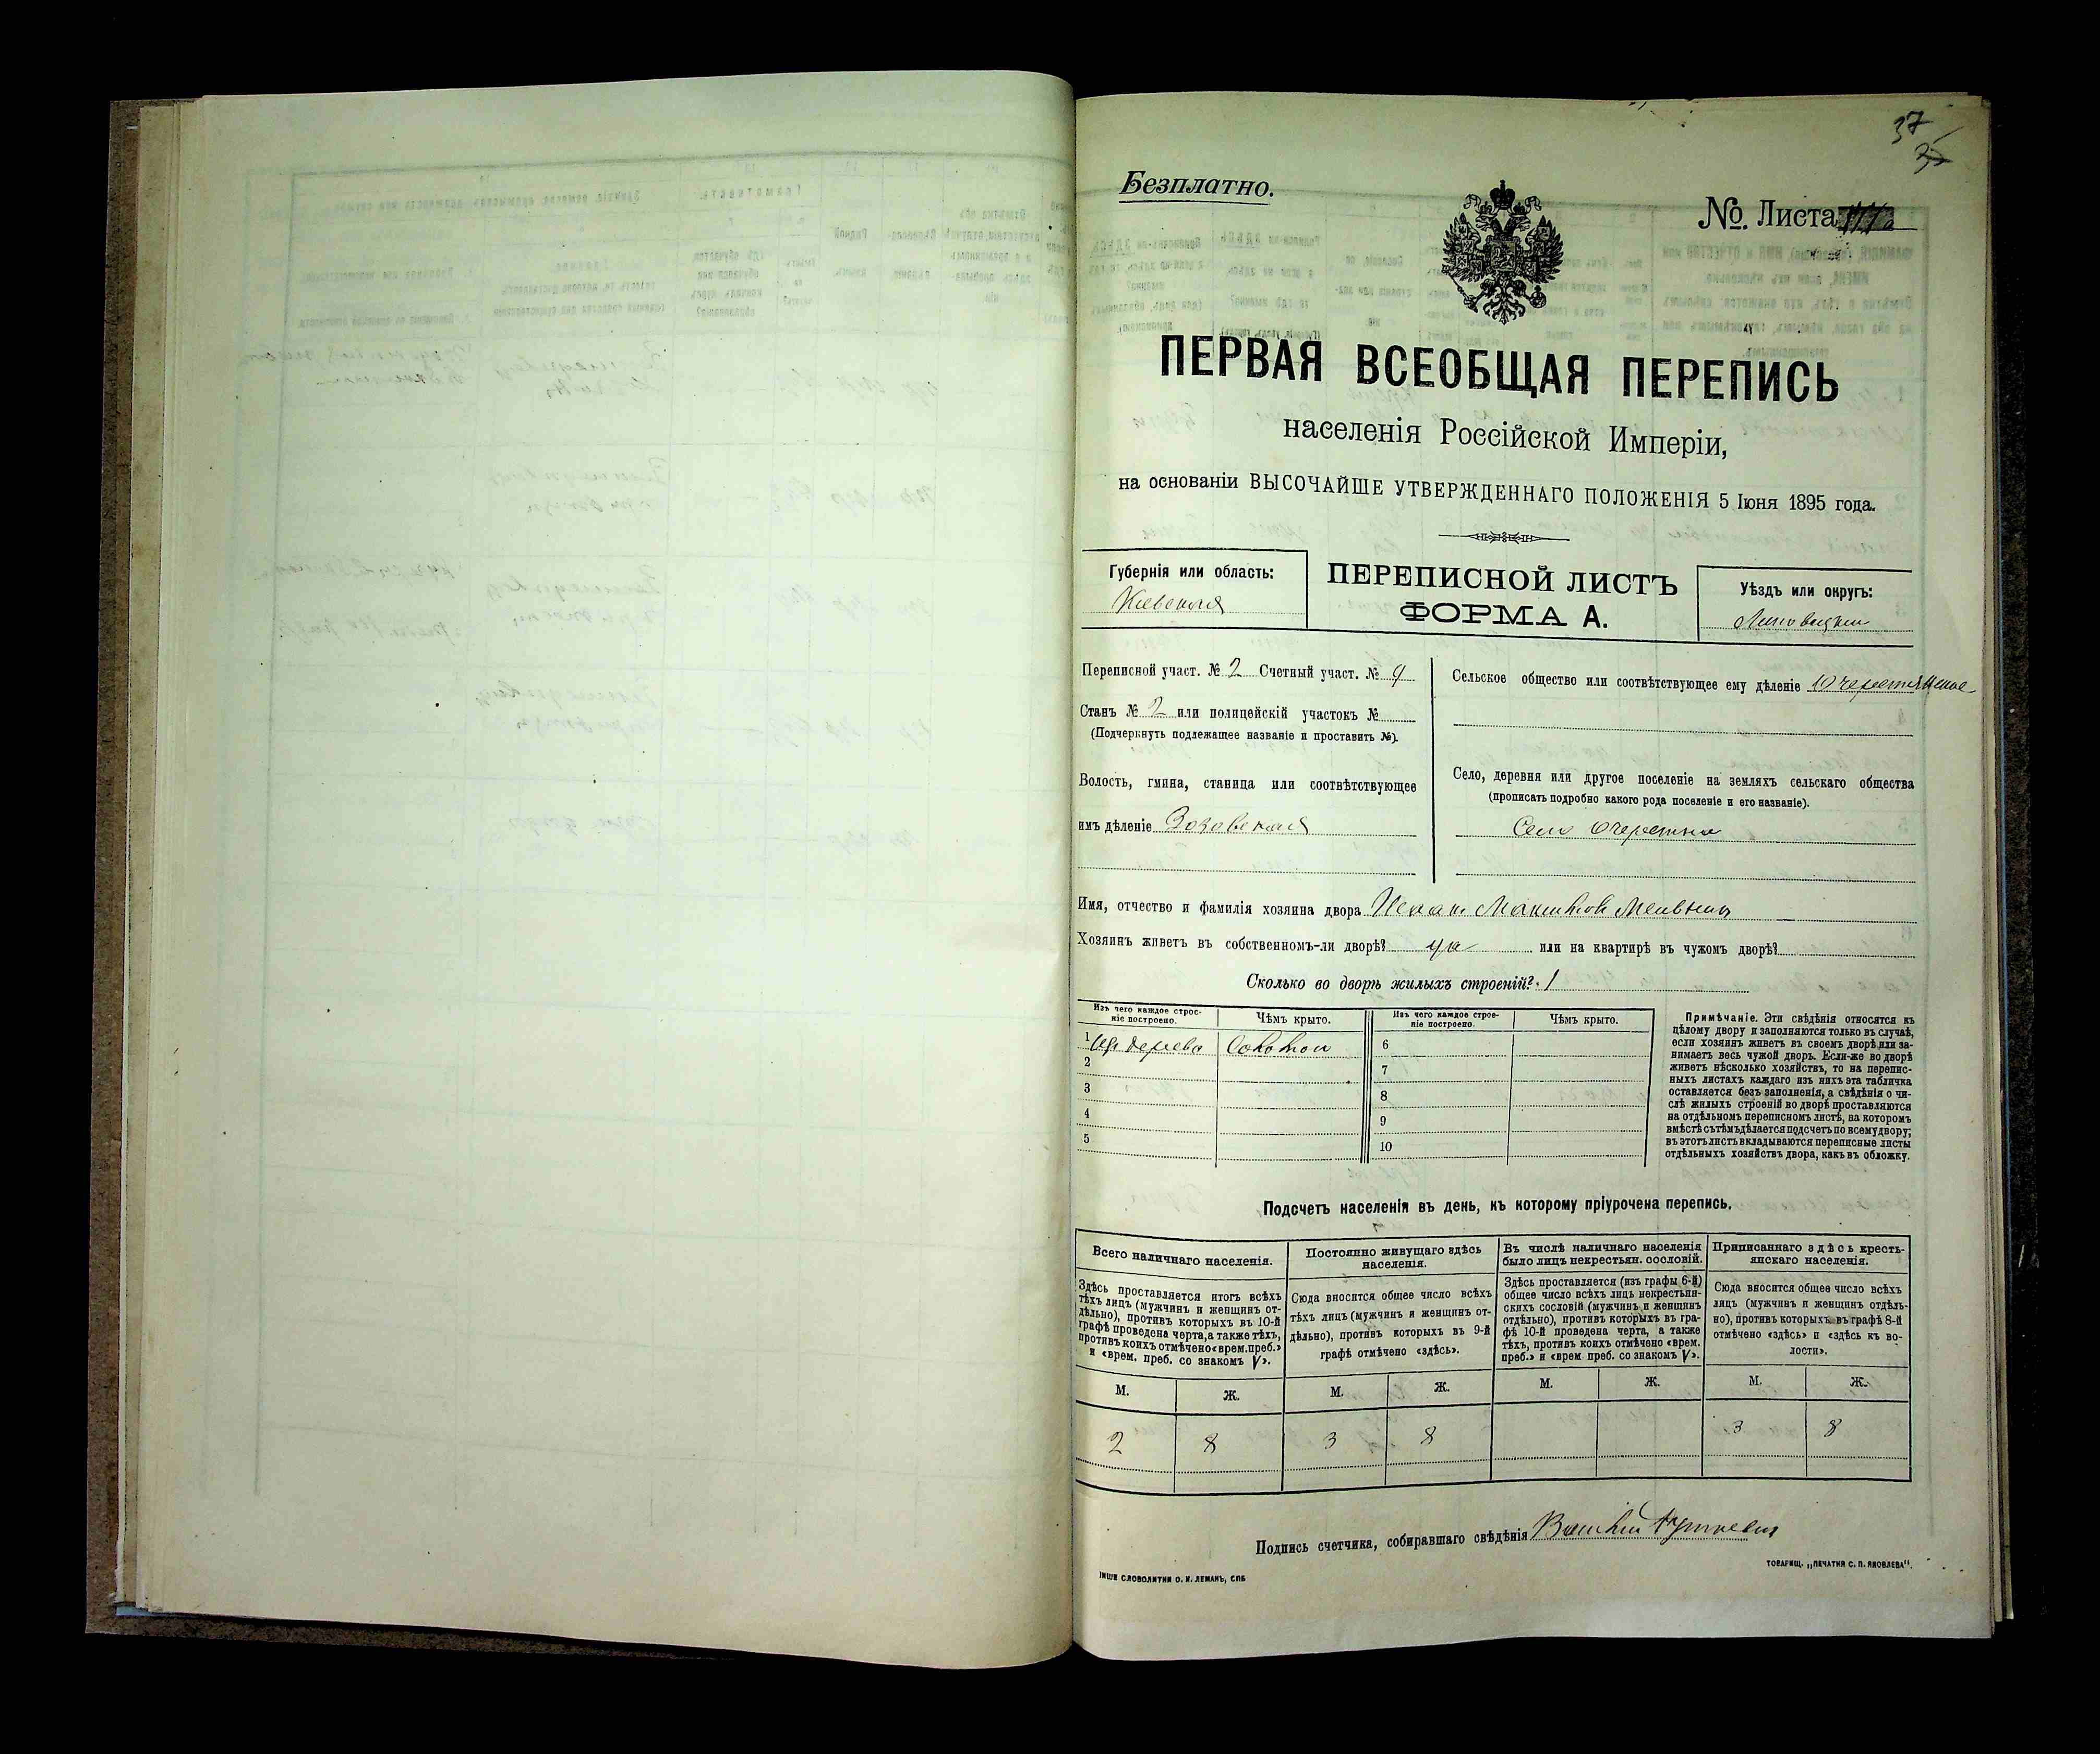 37
35
Безплатно.
№. Листа
ПЕРВАЯ ВСЕОБЩАЯ ПЕРЕПИСЬ
населенія Россійской Имперіи,
на основаніи ВЫСОЧАЙШЕ УТВЕРЖДЕННАГО ПОЛОЖЕНІЯ 5 Іюня 1895 года.
Губернія или область:
Кіевская
ПЕРЕПИСНОЙ ЛИСТЪ
ФОРМА А.
Уѣздъ или округъ:
Липовецкій
Переписной участ. № 2 Счетный участ. № 4
Станъ № 2 или полицейскій участокъ №
(Подчеркнуть подлежащее названіе и проставить №).
Волость, гмина, станица или соотвѣтствующее
имъ дѣленіе Зозовская
Сельское общество или соотвѣтствующее ему дѣленіе
Село, деревня или другое поселеніе на земляхъ сельскаго общества
(прописать подробно какого рода поселеніе и его названіе).
Село Очеретня
Имя, отчество и фамилія хозяина двора
Хозяинъ живетъ въ собственномъ-ли дворѣ? да или на квартирѣ въ чужомъ дворѣ?
Сколько во дворѣ жилыхъ строеній? 1
Изъ чего каждое строе-
ніе построено.
Чѣмъ крыто.
Изъ чего каждое строе-
ніе построено.
Чѣмъ крыто.
1 Изъ дерева Соломой 6
2 7
3 8
4 9
5 10
Примѣчаніе. Эти свѣдѣнія относятся къ
цѣлому двору и заполняются только въ случаѣ,
если хозяинъ живетъ въ своемъ дворѣ или за-
нимаетъ весь чужой дворъ. Если-же во дворѣ
живетъ нѣсколько хозяйствъ, то на перепис-
ныхъ листахъ каждаго изъ нихъ эта табличка
оставляется безъ заполненія, а свѣдѣнія о чи-
слѣ жилыхъ строеній во дворѣ проставляются
на отдѣльномъ переписномъ листѣ, на которомъ
вмѣстѣ съ тѣмъ дѣлается подсчетъ по всему двору;
въ этотъ листъ вкладываются переписные листы
отдѣльныхъ хозяйствъ двора, какъ въ обложку.
Подсчетъ населенія въ день, къ которому пріурочена перепись.
Всего наличнаго населенія.
Здѣсь проставляется итогъ всѣхъ
тѣхъ лицъ (мужчинъ и женщинъ от-
дѣльно), противъ которыхъ въ 10-й
графѣ проведена черта, а также тѣхъ,
противъ коихъ отмѣчено «врем. преб.»
и «врем. преб. со знакомъ V».
Постоянно живущаго здѣсь
населенія.
Сюда вносится общее число всѣхъ
тѣхъ лицъ (мужчинъ и женщинъ от-
дѣльно), противъ которыхъ въ 9-й
графѣ отмѣчено «здѣсь».
Въ числѣ наличнаго населенія
было лицъ некрестьян. сословій.
Здѣсь проставляется (изъ графы 6-й)
общее число всѣхъ лицъ некрестьян-
скихъ сословій (мужчинъ и женщинъ
отдѣльно), противъ которыхъ въ гра-
фѣ 10-й проведена черта, а также
тѣхъ, противъ коихъ отмѣчено «врем.
преб.» и «врем. преб. со знакомъ V».
Приписаннаго здѣсь кресть-
янскаго населенія.
Сюда вносится общее число всѣхъ
лицъ (мужчинъ и женщинъ отдѣль-
но), противъ которыхъ въ графѣ 8-й
отмѣчено «здѣсь» и «здѣсь къ во-
лости».
М. Ж. М. Ж. М. Ж. М. Ж.
2 8 3 8 3 8
Подпись счетчика, собиравшаго свѣдѣнія
СЛОВОЛИТНИ О. И. ЛЕМАНЪ, СПБ
ТОВАРИЩ. „ПЕЧАТНЯ С. П. ЯКОВЛЕВА“.